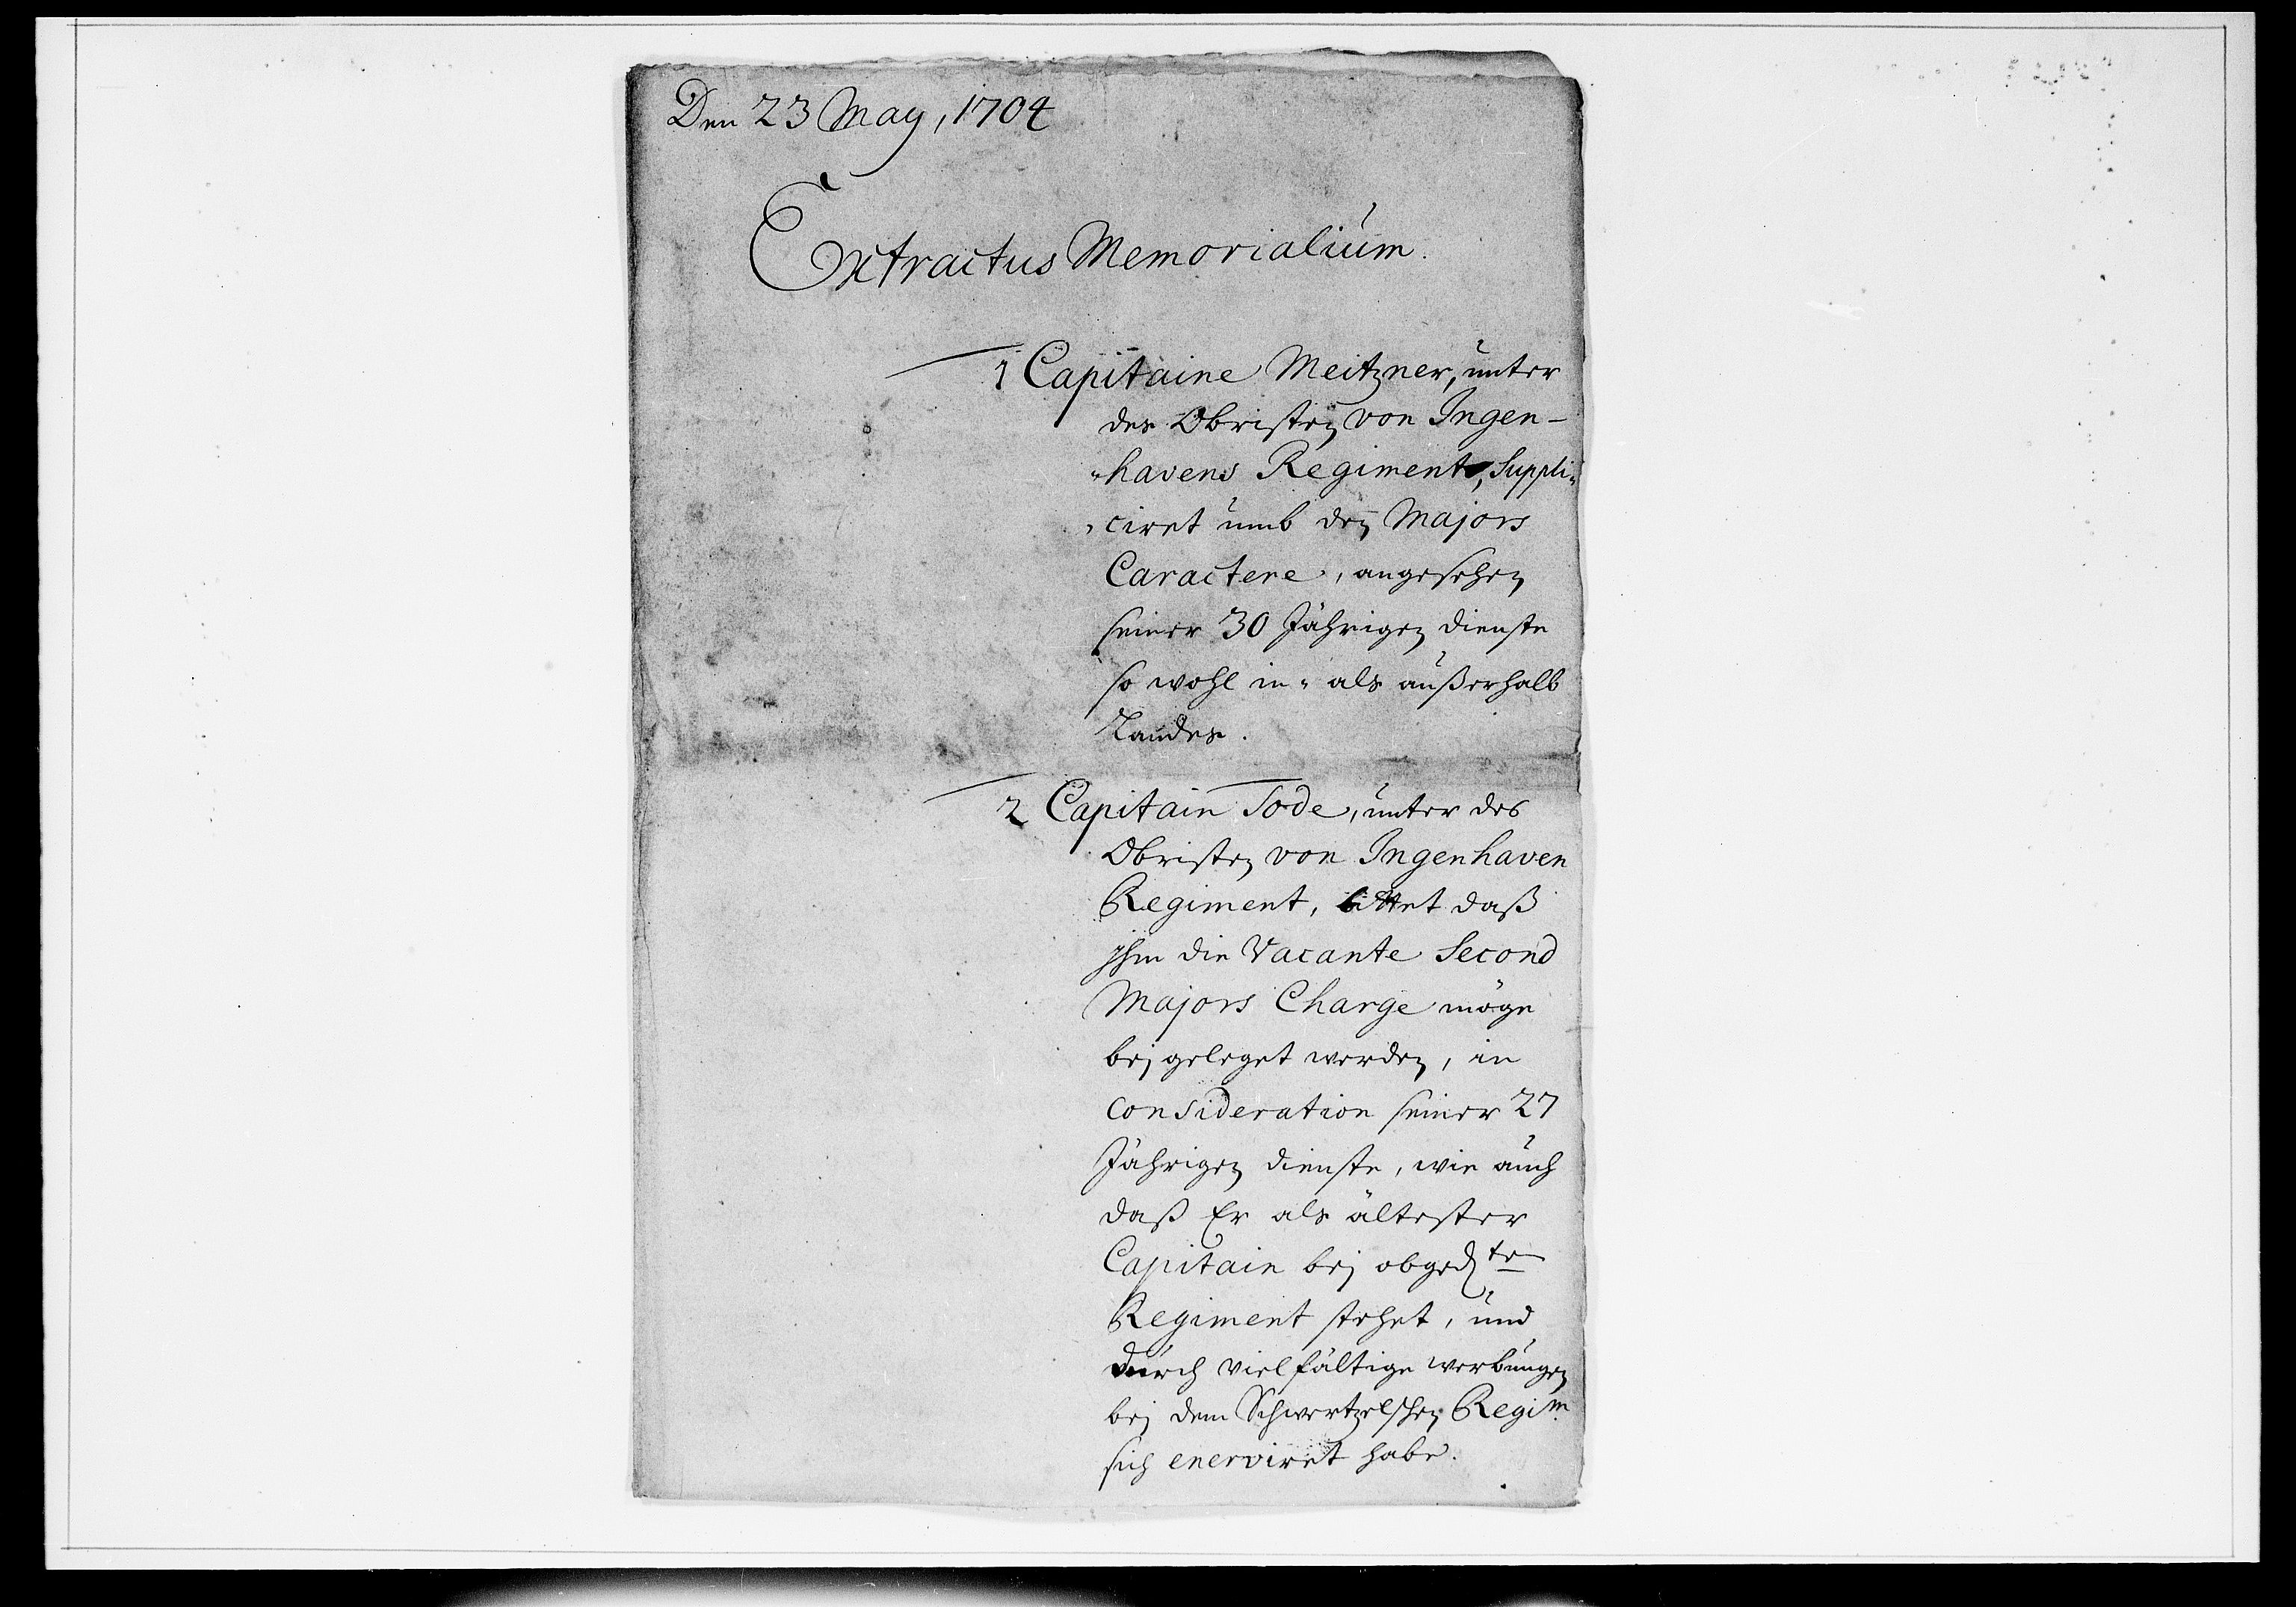 Den 23 May, 1704
Extractus Memorialium.
1 Capitaine Meitzner, unter
des Obristen von Ingen-
"havens Regiment, Suppli"
"ciret umb den Majors
Caractere, angesehen
seiner 30 Jährigen dienste
so wohl in- als außerhalb
Landes.
2 Capitain Tode, unter des
Obristen von Ingenhaven
Regiment, bittet daß
ihm die Vacante Second
Majors Charge möge
bej geleget werden, in
consideration seiner 27
Jährigen dienste, wie auch
daß Er als ältester
Capitain bej obged.ten
Regiment stehet, und
durch vielfältige werbungen
bej dem Schwertzelschen Regim.
sich enerviret habe.